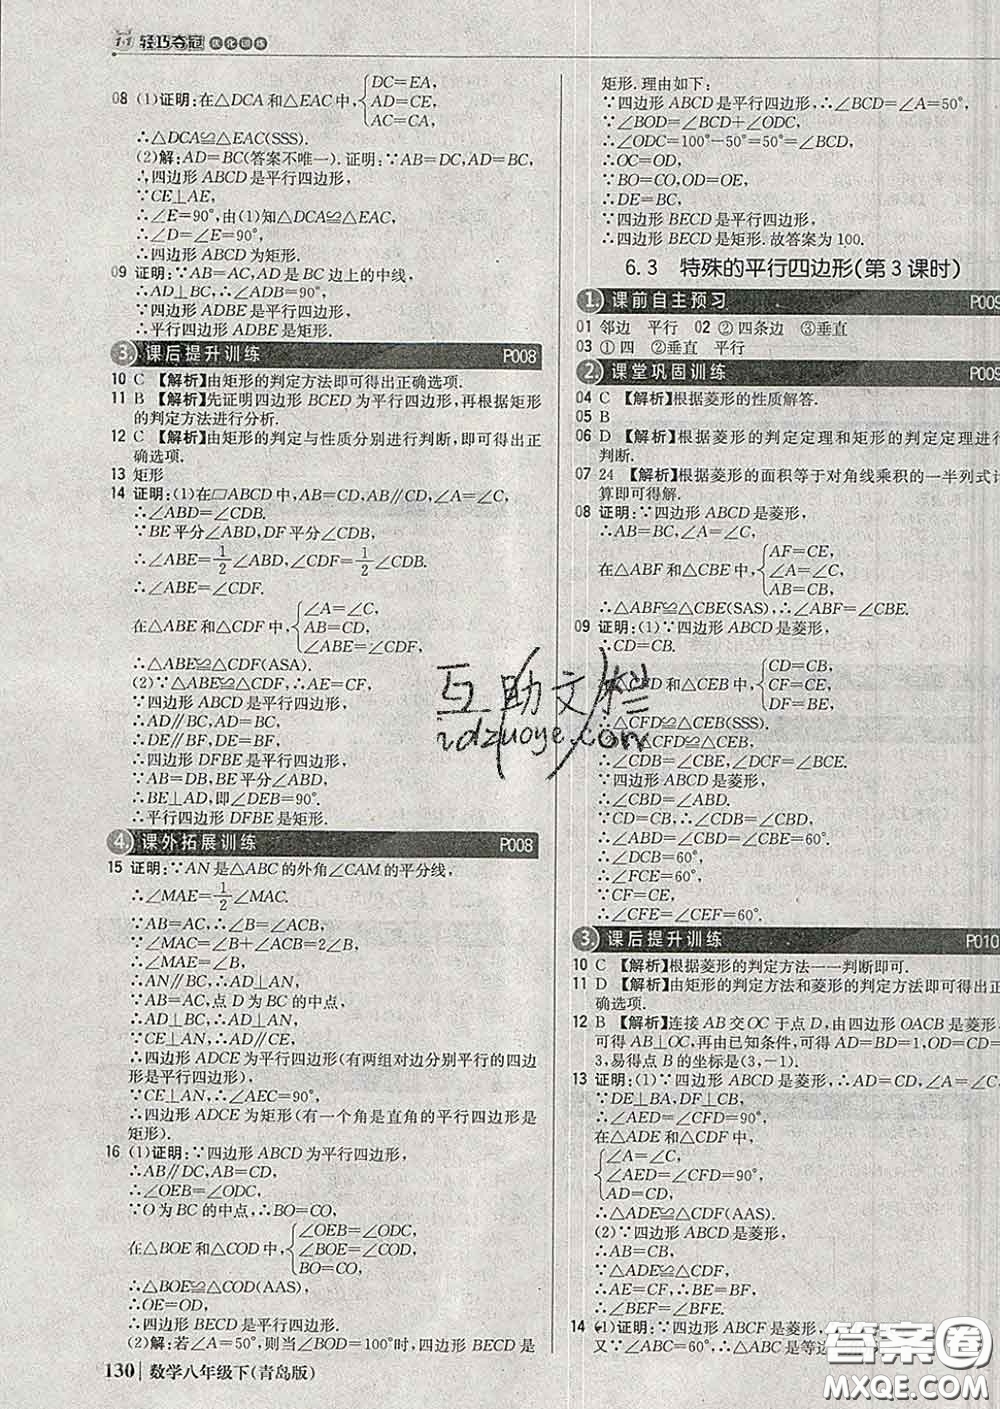 1+1 轻巧夺冠 优化训练
08 (1)证明:在△DCA和△EAC中,{DC=EA,
AD=CE,
AC=CA,
∴△DCA≌△EAC(SSS).
(2)解:AD=BC(答案不唯一).证明:∵AB=DC,AD=BC,
∴四边形ABCD是平行四边形,
∵CE⊥AE,
∴∠E=90°,由(1)知△DCA≌△EAC,
∴∠D=∠E=90°,
∴四边形ABCD为矩形.
09 证明:∵AB=AC,AD是BC边上的中线,
∴AD⊥BC,∴∠ADB=90°,
∵四边形ADBE是平行四边形,
∴平行四边形ADBE是矩形.
3. 课后提升训练 P008
10 C 【解析】由矩形的判定方法即可得出正确选项.
11 B 【解析】先证明四边形BCED为平行四边形,再根据矩形
的判定方法进行分析.
12 C 【解析】由矩形的判定与性质分别进行判断,即可得出正
确选项.
13 矩形
14 证明:(1)在□ABCD中,AB=CD,AB∥CD,∠A=∠C,
∴∠ABD=∠CDB.
∵BE平分∠ABD,DF平分∠CDB,
∴∠ABE=1/2∠ABD,∠CDF=1/2∠CDB.
∴∠ABE=∠CDF.
在△ABE和△CDF中,{∠A=∠C,
AB=CD,
∠ABE=∠CDF,
∴△ABE≌△CDF(ASA).
(2)∵△ABE≌△CDF,∴AE=CF,
∵四边形ABCD是平行四边形,
∴AD∥BC,AD=BC,
∴DE∥BF,DE=BF,
∴四边形DFBE是平行四边形,
∵AB=DB,BE平分∠ABD,
∴BE⊥AD,即∠DEB=90°.
∴平行四边形DFBE是矩形.
4. 课外拓展训练 P008
15 证明:∵AN是△ABC的外角∠CAM的平分线,
∴∠MAE=1/2∠MAC.
∵AB=AC,∴∠B=∠ACB,
∵∠MAC=∠B+∠ACB=2∠B,
∴∠MAE=∠B,
∴AN∥BC,∴AD⊥AN,
∵AB=AC,点D为BC的中点,
∴AD⊥BC,∴AD⊥AN,
∵CE⊥AN,∴AD∥CE,
∴四边形ADCE为平行四边形(有两组对边分别平行的四边
形是平行四边形),
∵CE⊥AN,∴∠AEC=90°,
∴四边形ADCE为矩形(有一个角是直角的平行四边形是
矩形).
16 (1)证明:∵四边形ABCD为平行四边形,
∴AB∥DC,AB=CD,
∴∠OEB=∠ODC,
∵O为BC的中点,∴BO=CO,
在△BOE和△COD中,{∠OEB=∠ODC,
∠BOE=∠COD,
BO=CO,
∴△BOE≌△COD(AAS),
∴OE=OD,
∴四边形BECD是平行四边形.
(2)解:若∠A=50°,则当∠BOD=100°时,四边形BECD是
130 数学八年级下(青岛版)
矩形.理由如下:
∵四边形ABCD是平行四边形,∴∠BCD=∠A=50°,
∵∠BOD=∠BCD+∠ODC,
∴∠ODC=100°-50°=50°=∠BCD,
∴OC=OD,
∵BO=CO,OD=OE,
∴DE=BC,
∵四边形BECD是平行四边形,
∴四边形BECD是矩形.故答案为100.
6.3 特殊的平行四边形(第3课时)
1. 课前自主预习 P009
01 邻边 平行 02 ②四条边 ③垂直
03 ①四 ②垂直 平行
2. 课堂巩固训练 P009
04 C 【解析】根据菱形的性质解答.
05 B
06 D 【解析】根据菱形的判定定理和矩形的判定定理进行
判断.
07 24 【解析】根据菱形的面积等于对角线乘积的一半列式计
算即可得解.
08 证明:∵四边形ABCD是菱形,
∴AB=BC,∠A=∠C,
在△ABF和△CBE中,{AF=CE,
∠A=∠C,
AB=CB,
∴△ABF≌△CBE(SAS),∴∠ABF=∠CBE.
09 证明:(1)∵四边形ABCD是菱形,
∴CD=CB.
FD和△CEB中,{CD=CB,
CF=CE,
DF=BE,
∴△CFD≌△CEB(SSS).
∵△CFD≌△CEB,
∴∠CDB=∠CBE,∠DCF=∠BCE.
∵四边形ABCD是菱形,
∴∠CBD=∠ABD.
∵CD=CB,∴∠CDB=∠CBD,
∴∠ABD=∠CBD=∠CBE=60°,
∴∠DCB=60°,
∴∠FCE=60°,
∵CF=CE,
∴∠CFE=∠CEF=60°.
3. 课后提升训练 P010
10 C 【解析】根据菱形的判定方法一一判断即可.
11 D 【解析】由矩形的判定方法和菱形的判定方法即可得出正
确选项.
12 B 【解析】连接AB交OC于点D,由四边形OACB是菱形,
可得AB⊥OC,再由已知条件,可得AD=BD=1,OD=
3,易得点B的坐标是(3,-1).
13 证明:(1)∵四边形ABCD是菱形,∴AD=CD,∠A=∠C
∵DE⊥BA,DF⊥CB,
∴∠AED=∠CFD=90°,
在△ADE和△CDF中,
{∠A=∠C,
∠AED=∠CFD=90°,
AD=CD,
∴△ADE≌△CDF(AAS).
(2)∵四边形ABCD是菱形,
∴AB=CB,
∵△ADE≌△CDF,
∴AE=CF,∴BE=BF,
∴∠BEF=∠BFE.
14 (1)证明:∵四边形ABCF是菱形,
又∵∠ABC=60°,∴△ABC是等边
互助文栏
idzuoye.com
答案圈
MXQE.COM